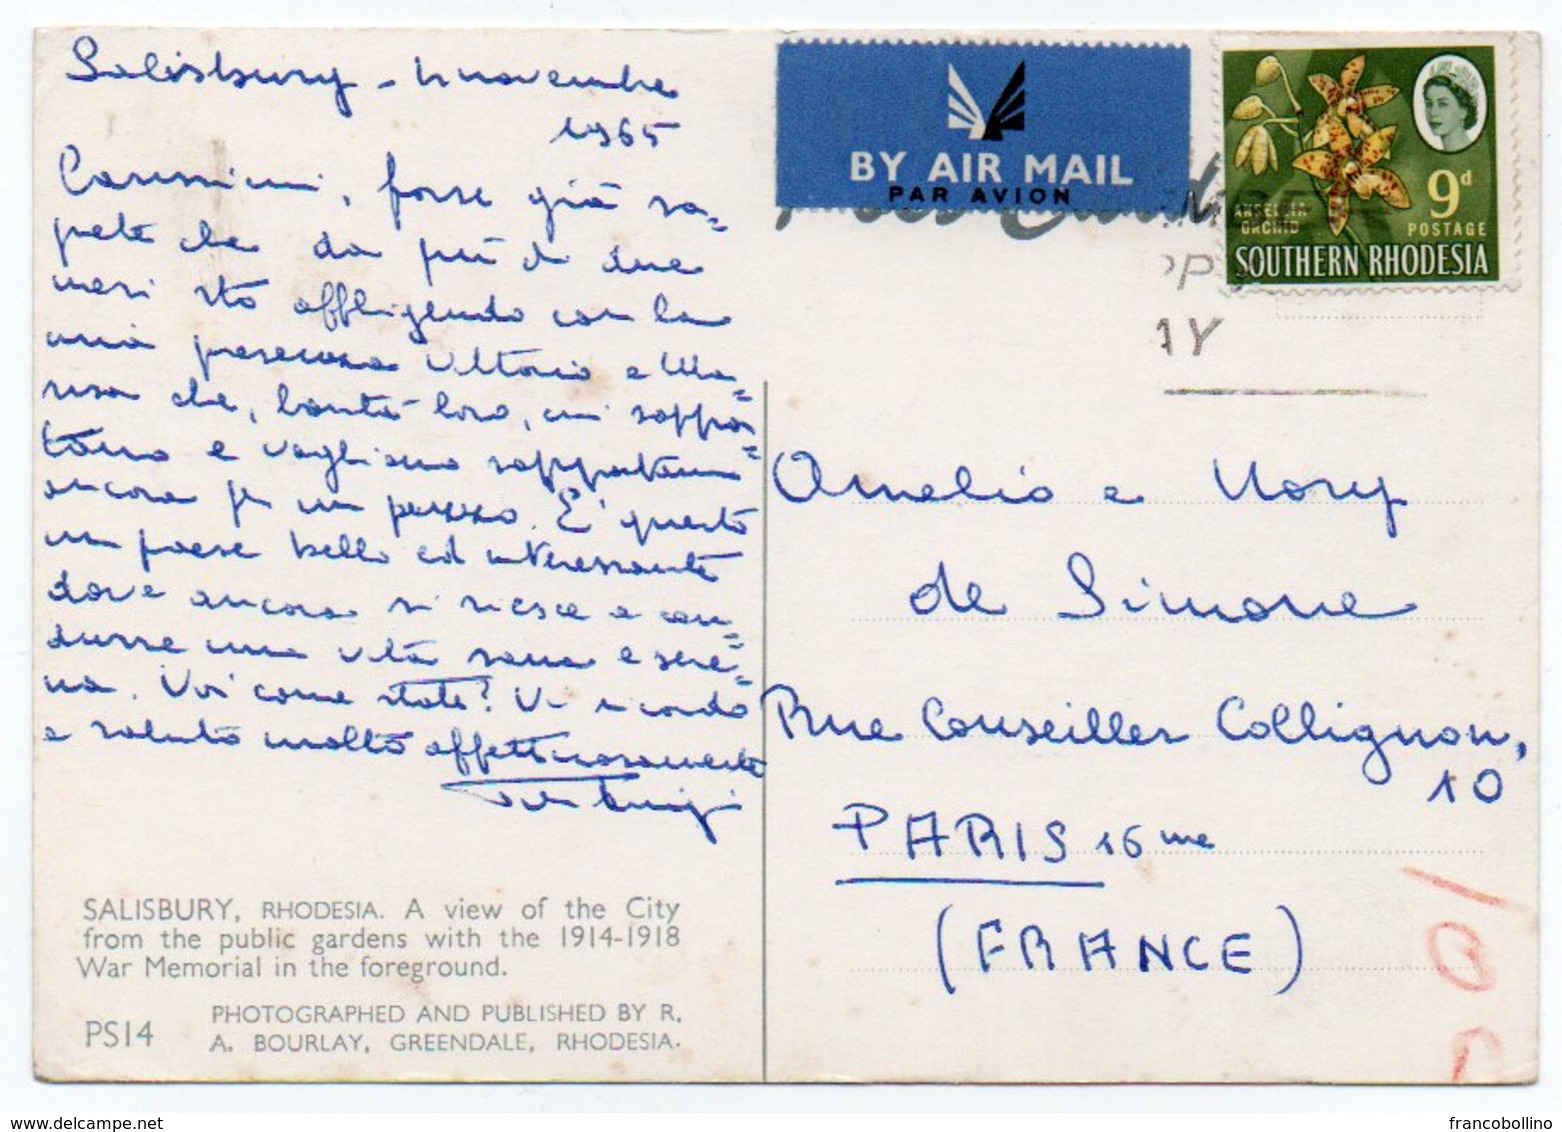 Salisbury - 4 novembre
1965
Carissimi, forse già sa=
pete che da più di due
mesi sto affliggendo con la
mia presenza Vittorio e Ma=
risa che, bontà loro, mi soppor=
tano e vogliono sopportarmi
ancora per un pezzo. E' questo
un paese bello ed interessante
dove ancora si riesce a con=
durre una vita sana e sere=
na. Voi come state? Vi ricordo
e saluto molto affettuosamente
Luigi
SALISBURY, RHODESIA. A view of the City
from the public gardens with the 1914-1918
War Memorial in the foreground.
PS14
PHOTOGRAPHED AND PUBLISHED BY R.
A. BOURLAY, GREENDALE, RHODESIA.
BY AIR MAIL
PAR AVION
9d
POSTAGE
ANSELLIA
ORCHID
SOUTHERN RHODESIA
AY
Amelio e Mary
de Simone
Rue Conseiller Collignon,
10
PARIS 16me
(FRANCE)
francobollino